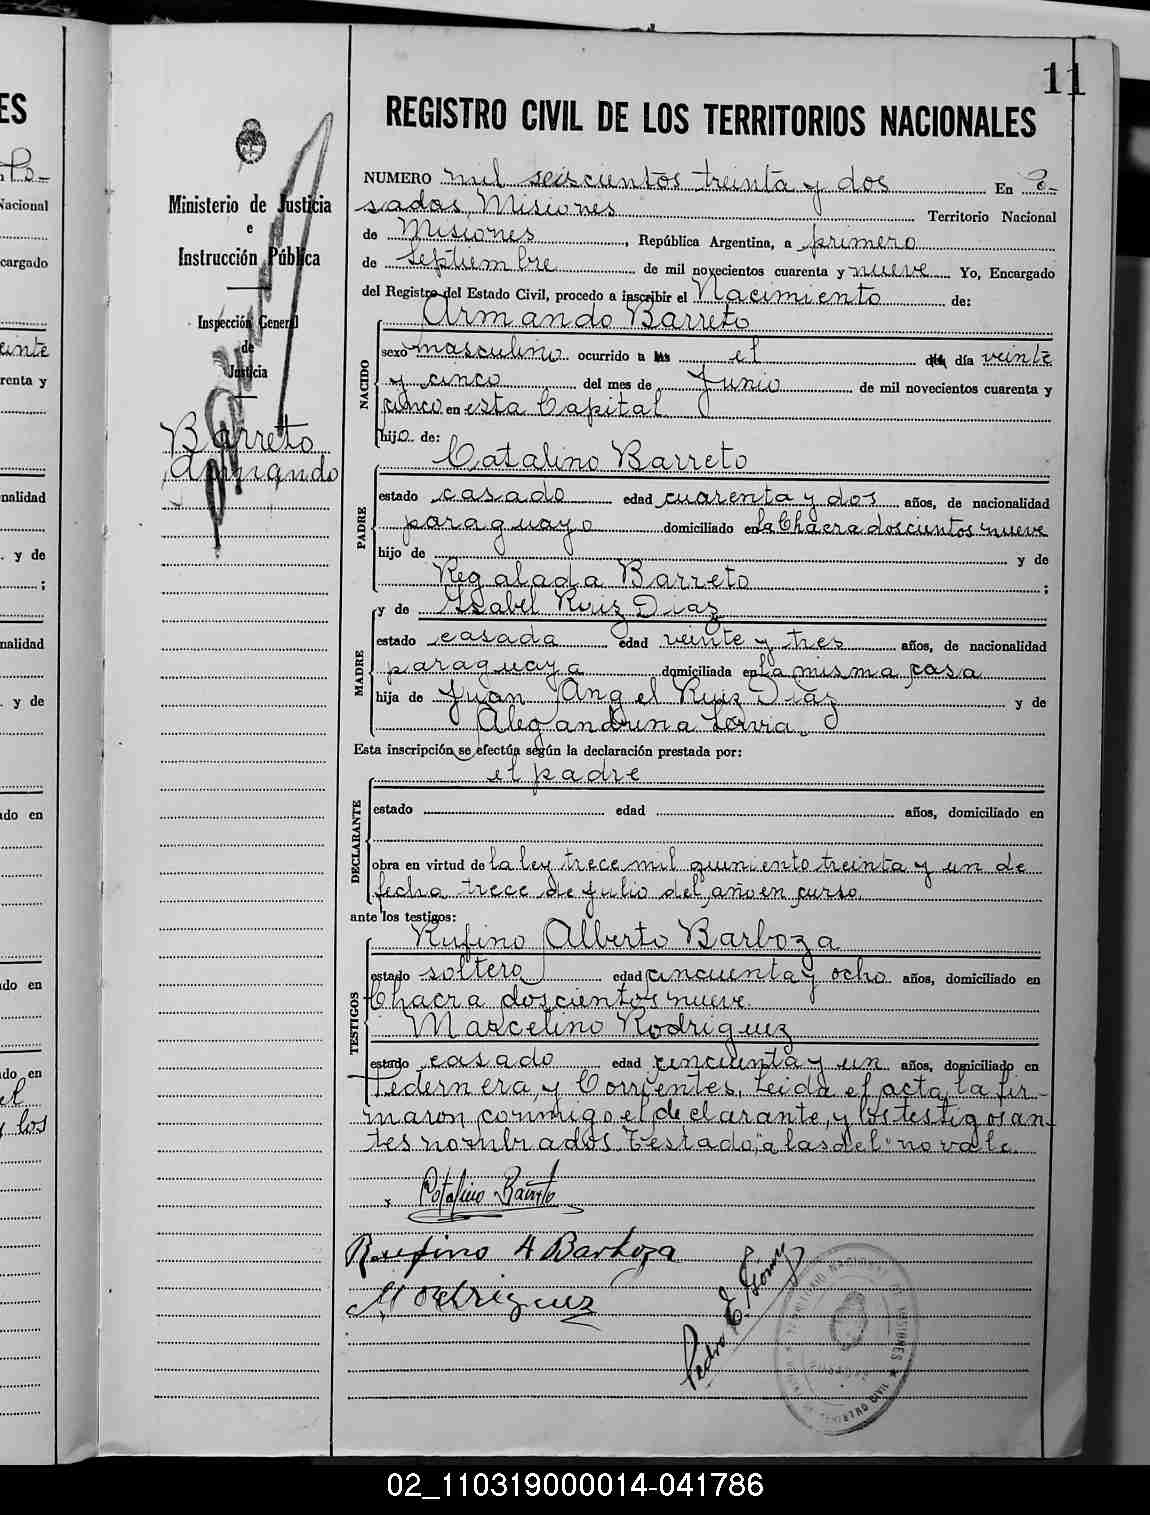 11
REGISTRO CIVIL DE LOS TERRITORIOS NACIONALES
Ministerio de Justicia
e
Instrucción Pública
Inspección General
de
Justicia
Barreto
Armando
NUMERO mil seiscientos treinta y dos En Po-
sadas, Misiones Territorio Nacional
de Misiones, República Argentina, a primero
de septiembre de mil novecientos cuarenta y nueve Yo, Encargado
del Registro del Estado Civil, procedo a inscribir el Nacimiento de:
Armando Barreto
NACIDO
sexo masculino ocurrido a las el del día veinte
y cinco del mes de Junio de mil novecientos cuarenta y
cinco en esta Capital
hijo de:
Catalino Barreto
PADRE
estado casado edad cuarenta y dos años, de nacionalidad
paraguayo domiciliado en la Chacra doscientos nueve
hijo de y de
Regalada Barreto ;
y de Isabel Ruiz Diaz
MADRE
estado casada edad veinte y tres años, de nacionalidad
paraguaya domiciliada en la misma casa
hija de Juan Angel Ruiz Diaz y de
Alegandrina
Esta inscripción se efectúa según la declaración prestada por:
el padre
DECLARANTE
estado edad años, domiciliado en
obra en virtud de la ley trece mil quiniento treinta y un de
fecha trece de julio del año en curso.
ante los testigos:
Rufino Alberto Barboza
TESTIGOS
estado soltero edad cincuenta y ocho años, domiciliado en
Chacra doscientos nueve.
Marcelino Rodriguez
estado casado edad cincuenta y un años, domiciliado en
Federnera, y Corrientes. Leida el acta, la fir-
maron conmigo, el declarante, y los testigos an-
tes nombrados. Testado, "a las del" no vale.
x Catalino Barreto
Rufino A Barboza
M Rodriguez
Pedro E. Gómez
02_110319000014-041786